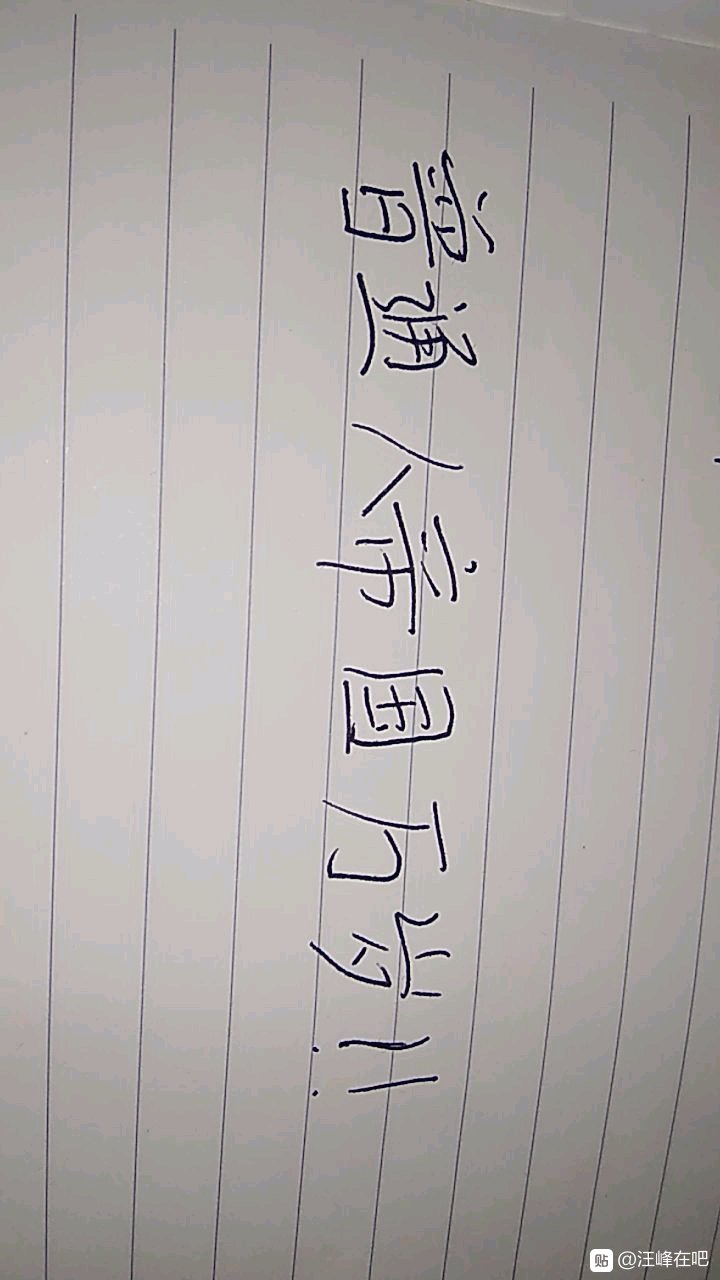 普通人帝国万岁!!
贴 @汪峰在吧